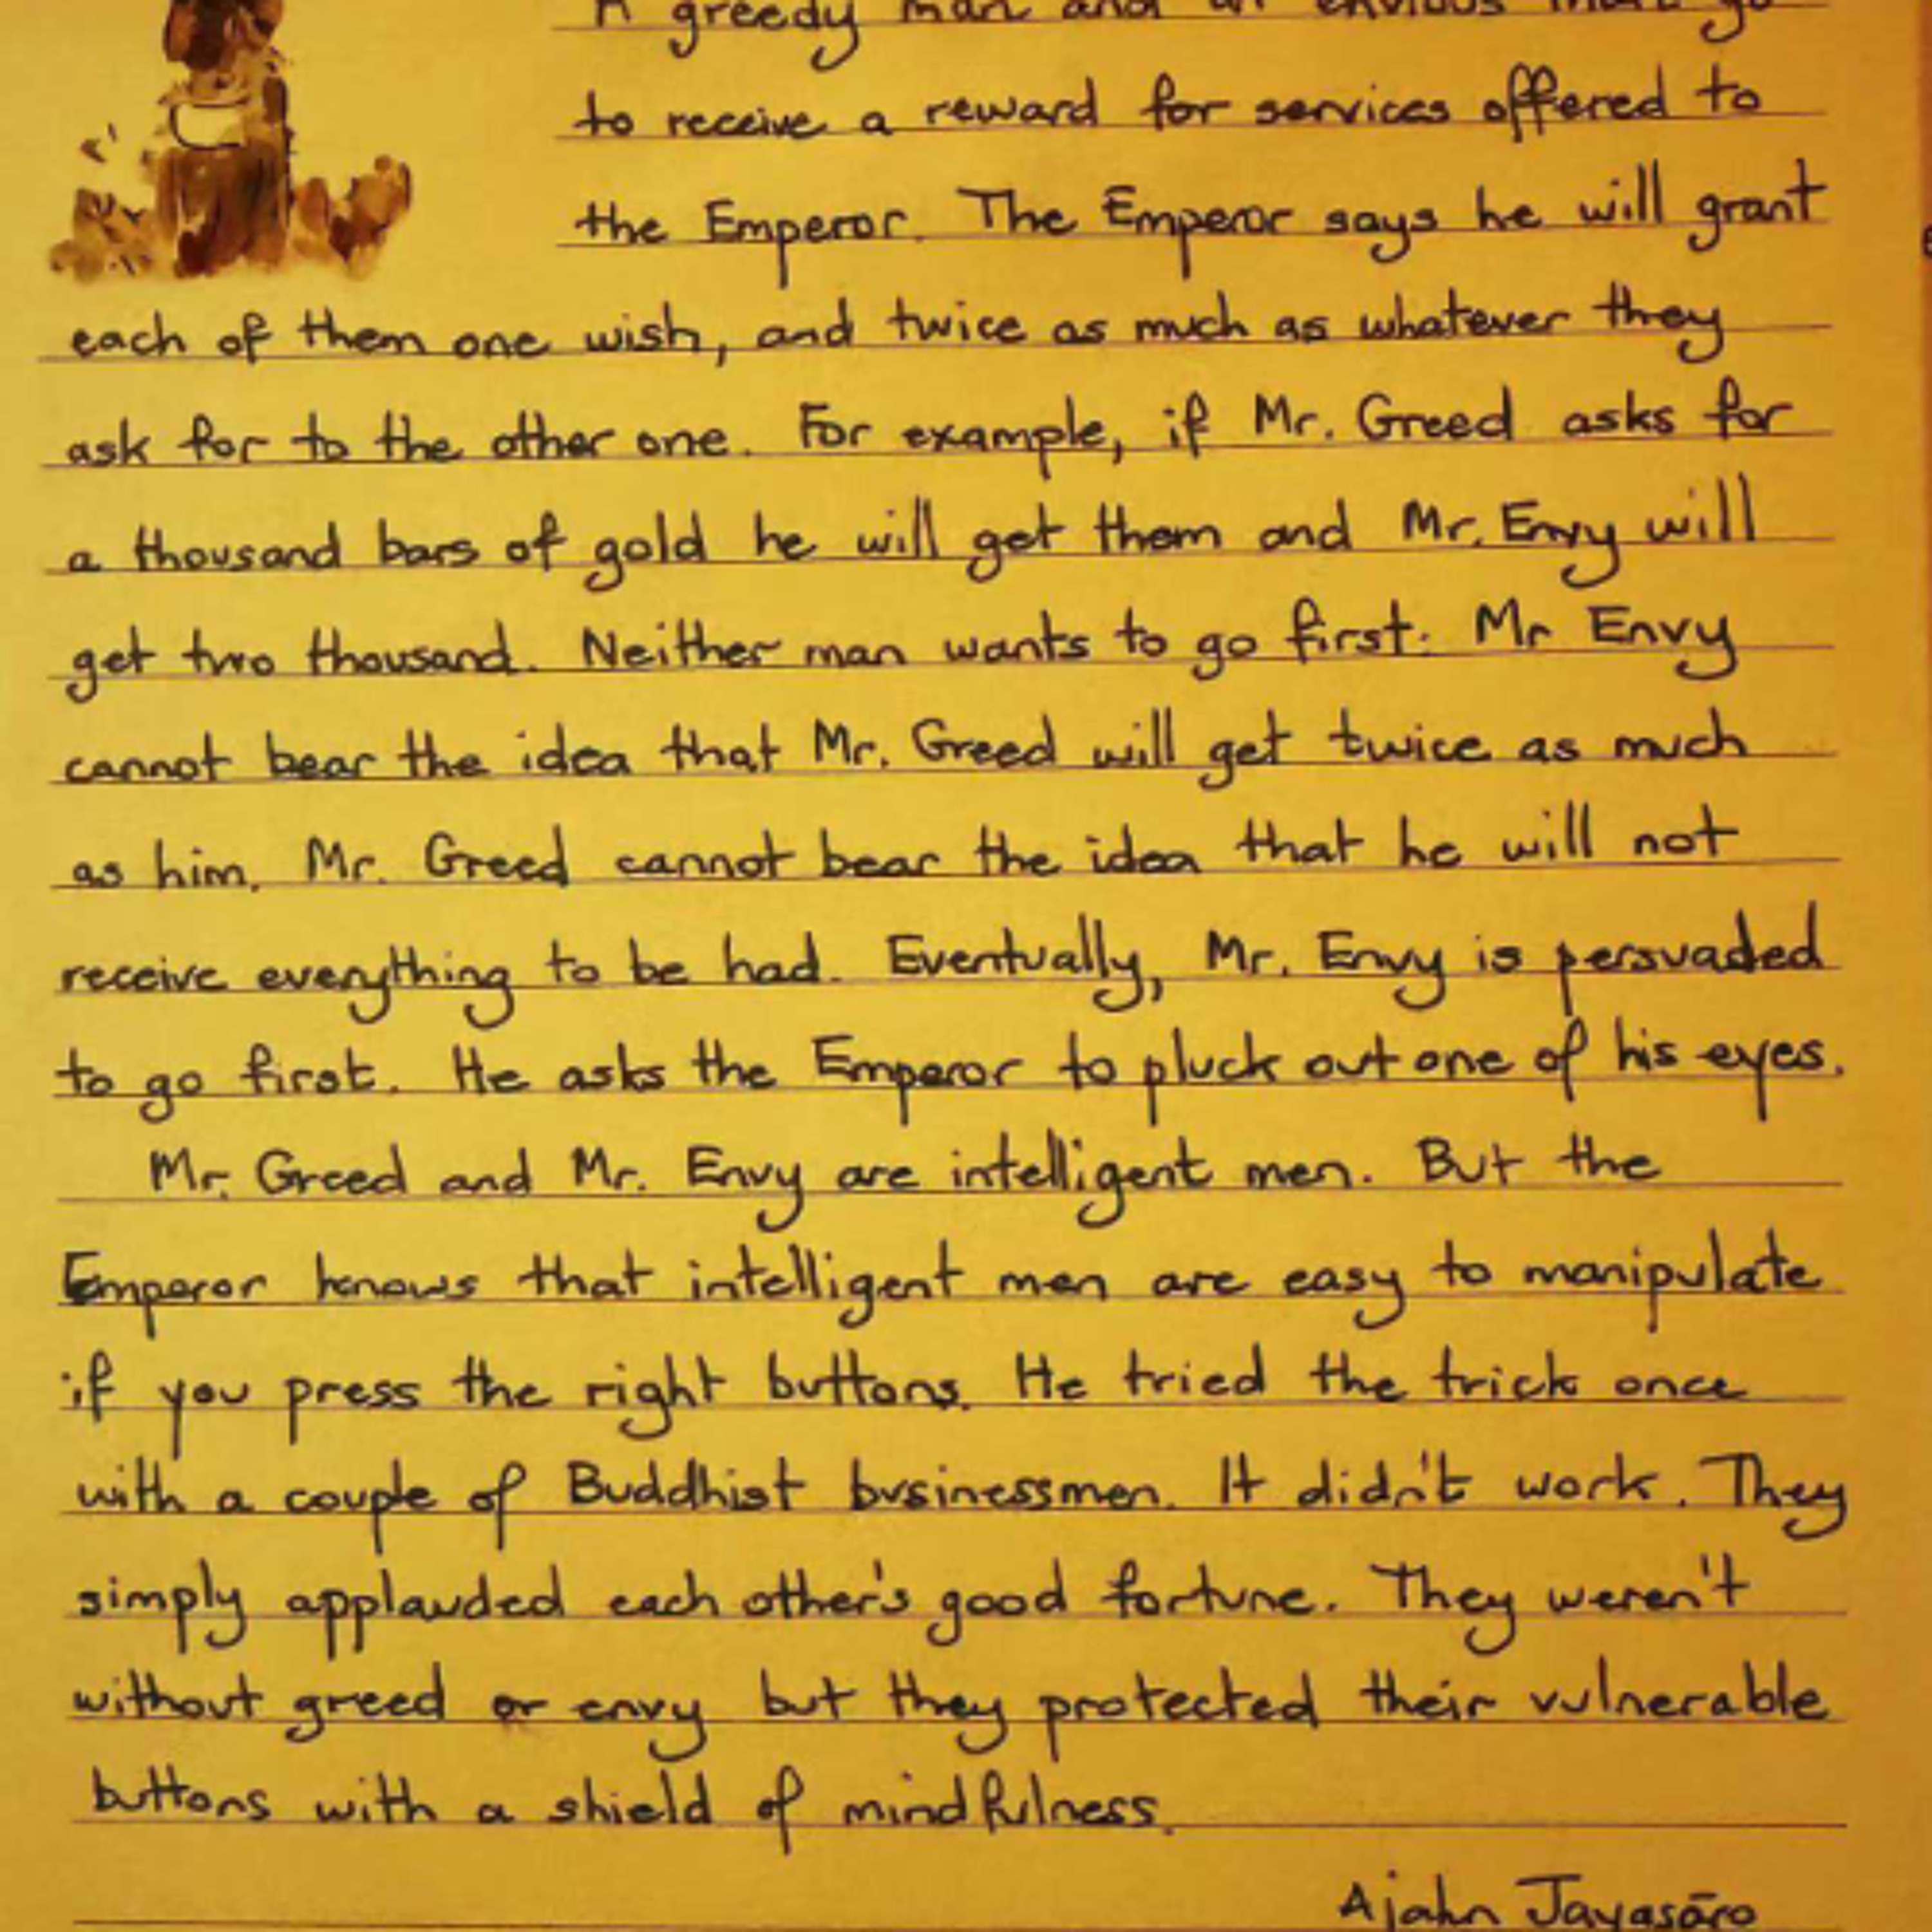 A greedy man and an envious man go
to receive a reward for services offered to
the Emperor. The Emperor says he will grant
each of them one wish, and twice as much as whatever they
ask for to the other one. For example, if Mr. Greed asks for
a thousand bars of gold he will get them and Mr. Envy will
get two thousand. Neither man wants to go first: Mr Envy
cannot bear the idea that Mr. Greed will get twice as much
as him. Mr. Greed cannot bear the idea that he will not
receive everything to be had. Eventually, Mr. Envy is persuaded
to go first. He asks the Emperor to pluck out one of his eyes.
Mr. Greed and Mr. Envy are intelligent men. But the
Emperor knows that intelligent men are easy to manipulate
if you press the right buttons. He tried the trick once
with a couple of Buddhist businessmen. It didn't work. They
simply applauded each other's good fortune. They weren't
without greed or envy but they protected their vulnerable
buttons with a shield of mindfulness.
Ajahn Jayasāro